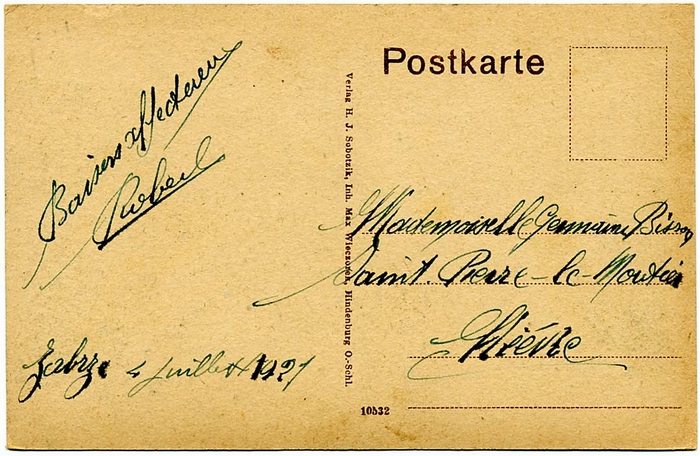 Postkarte
Baisers affectueux
Robert
Zabrze 4 Juillet 1921
Verlag H. J. Sobotzik, Inh. Max Wieczorek, Hindenburg O.-Schl.
Mademoiselle Germaine Bisson
Saint. Pierre-le Moutier
Nièvre
10532